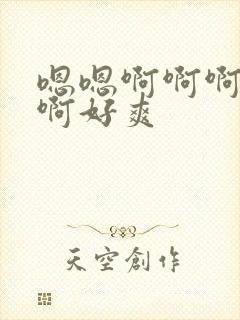 嗯嗯啊啊啊
啊好爽
天空創作